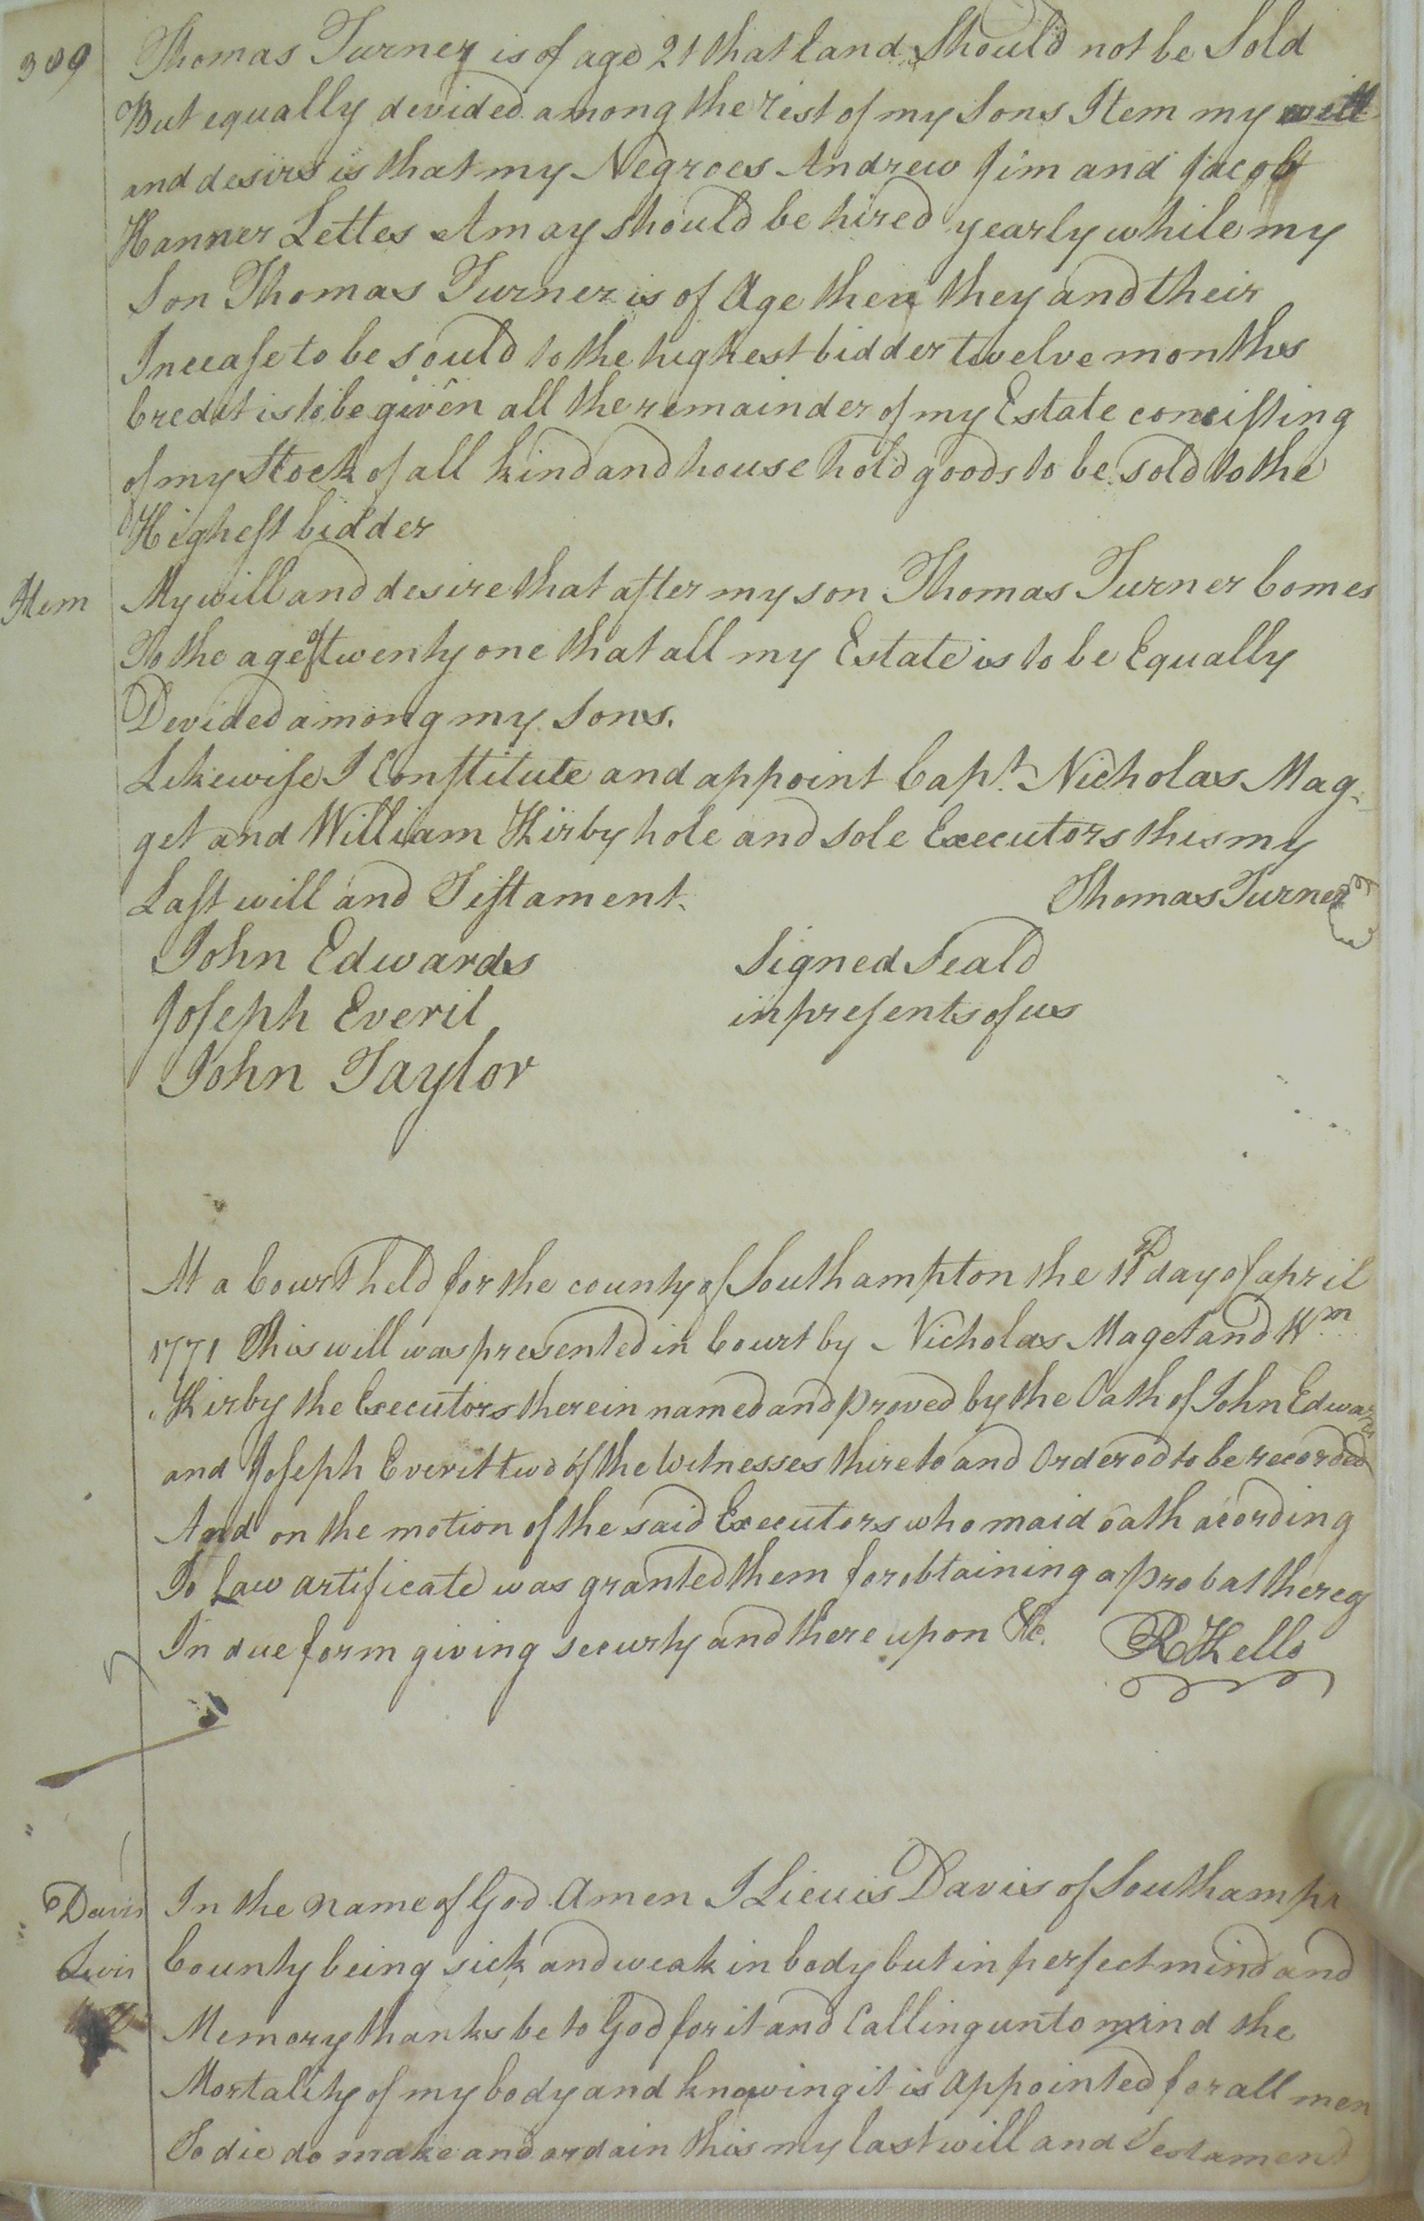 309
Thomas Turner is of age 21 that land Should not be Sold
But equally devided among the rest of my Sons Item my will
and desire is that my Negroes Andrew Jim and Jacob
Hanner Lettes Amay should be hired yearly while my
Son Thomas Turner is of Age then they and their
Increase to be sould to the highest bidder twelve months
Credit is to be given all the remainder of my Estate concisting
of my Stock of all kind and house hold goods to be sold to the
Highest bidder
Item My will and desire that after my son Thomas Turner Comes
To the age of twenty one that all my Estate is to be Equally
Devided among my Sons.
Likewise I Constitute and appoint Capt. Nicholas Mag-
get and William Kirby hole and Sole Executors this my
Last will and Testament. Thomas Turner
John Edwards Signed Seald
Joseph Everit in presents of us
John Taylor
At a Court held for the county of Southampton the 11th day of april
1771 This will was presented in Court by Nicholas Maget and Wm
Kirby the Executors therein named and proved by the Oath of John Edwards
and Joseph Everit two of the Witnesses thireto and Ordered to be recorded
And on the motion of the said Executors who maid oath acording
To Law artificate was granted them for obtaining a probat thereof
In due form giving securty and there upon &c. R Kello
Davis In the name of God Amen I Lieuis Davis of Southampt
Lewis County being sick and weak in body but in perfect mind and
Memory thanks be to God for it and Calling unto mind the
Mortality of my body and knowing it is appointed for all men
To die do make and ordain this my last will and Testament